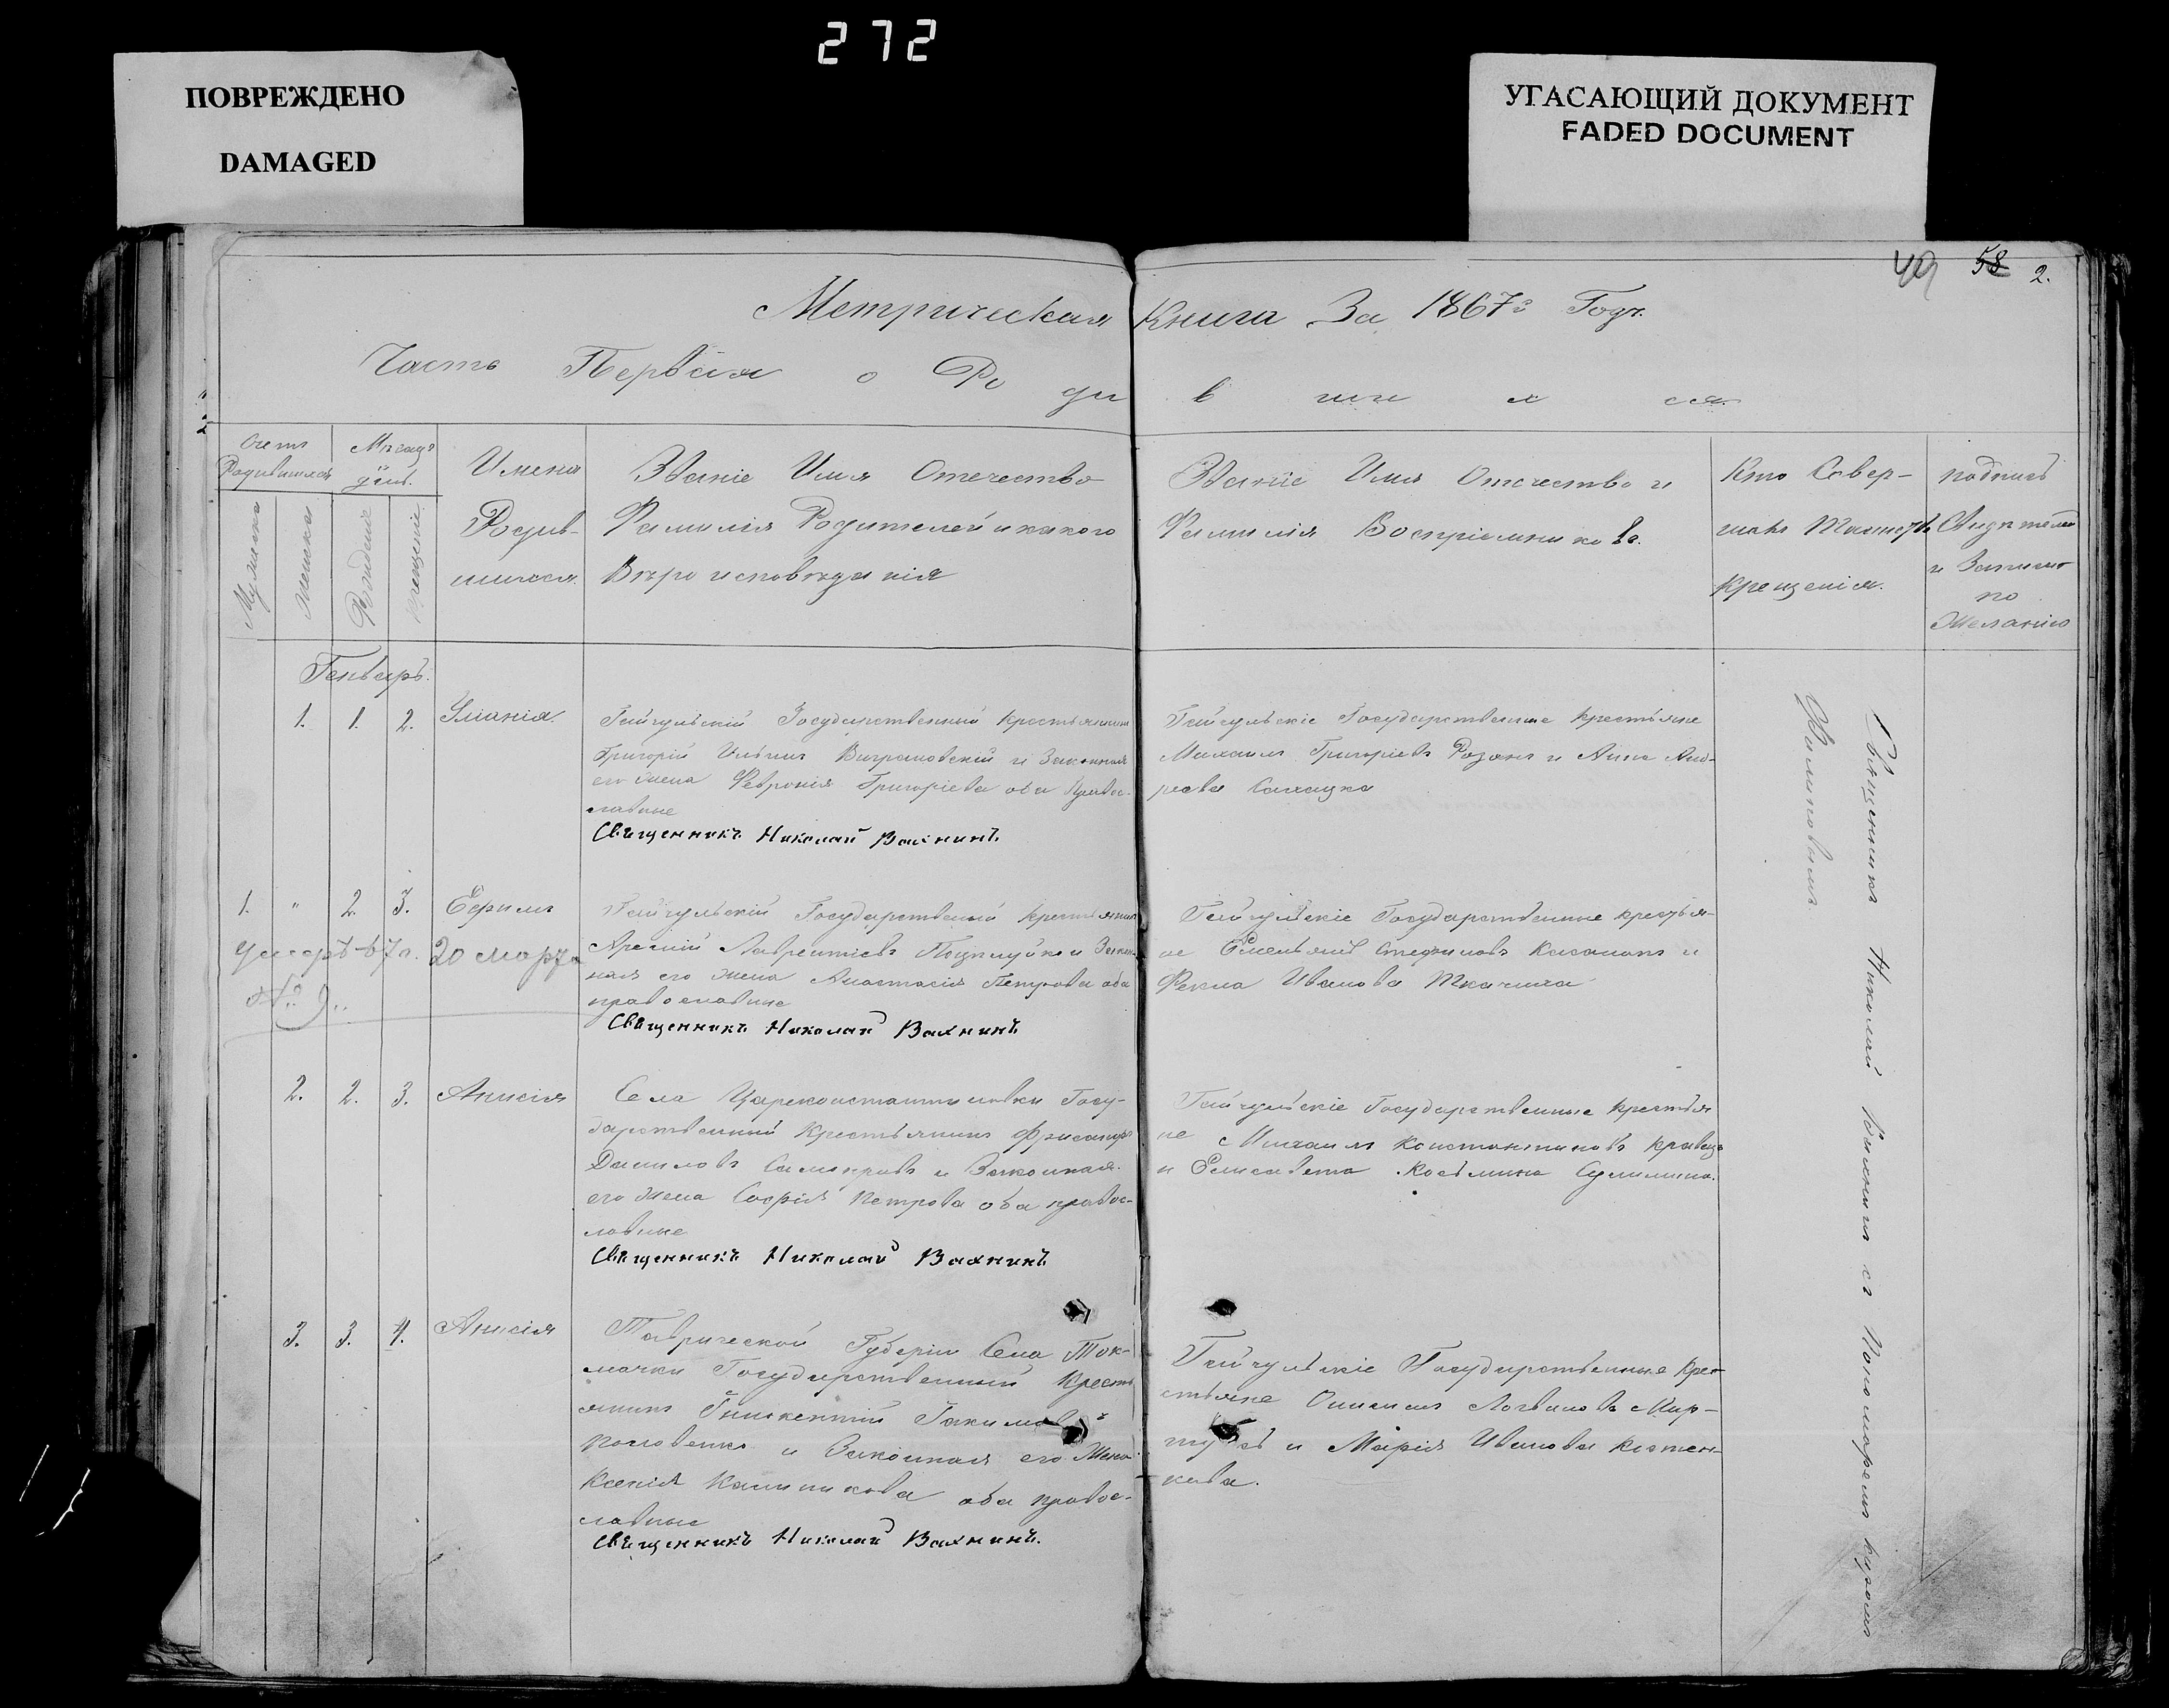 272
ПОВРЕЖДЕНО
DAMAGED
УГАСАЮЩИЙ ДОКУМЕНТ
FADED DOCUMENT
49 58 2.
Метрическая Книга За 1867й Годъ.
Часть Первая о Ро ди в ши х ся.
Счетъ Родившихся
Мужска
Женска
Месяцъ и день.
Рождение
Крещеніе
Имена
Родив-
шихся.
Званіе Имя Отечество
Фамилія Родителей и какого
Вероисповеданія
Званіе Имя Отечество и
Фамилія Воспріемниковъ.
Кто Совер-
шалъ Таинство
Крещенія.
подпись
Свидетелей
и Записи
по
Желанію
Генварь.
1. 1. 2.
Гайчульскій Государственный Крестьянинъ
Григорій Ильинъ и Законная
его жена Феврония Григоріева оба Правос-
лавные
Священникъ Николай Вахнинъ.
Гайчульскіе Государственные Крестьяне
Михаилъ Григоріевъ Розанъ и Анна Анд-
реева
1. " 2. 3. Ефимъ
Умеръ 67 г. 20 марта
№ 9..
Гайчульскій Государственный крестьянинъ
Лаврентіевъ и Закон-
ная его жена Анастасія Петрова оба
православные
Священникъ Николай Вахнинъ.
Гайчульскіе Государственные крестья-
не Емельянъ Стефановъ и
Фекла Иванова Ткачиха
2. 2. 3. Анисія
Села Цареконстантиновки Госу-
дарственный Крестьянинъ
Даниловъ и Законная
его жена Софія Петрова оба правос-
лавные
Священникъ Николай Вахнинъ.
Гайчульскіе Государственные крестья
не Михаилъ Константиновъ Кравецъ
и Елисавета Косьмина
3. 3. 4. Анисія
Таврической Губерніи Села Ток-
мачки Государственный Кресть
янинъ Инокентій
и Законная его Жена
Ксенія Калиникова оба правос-
лавные
Священникъ Николай Вахнинъ.
Гайчульскіе Государственные Кре-
стьяне Логвиновъ Мар-
и Марія Иванова
кова.
Священникъ Николай Вахнинъ съ Пономаремъ
Филиповымъ